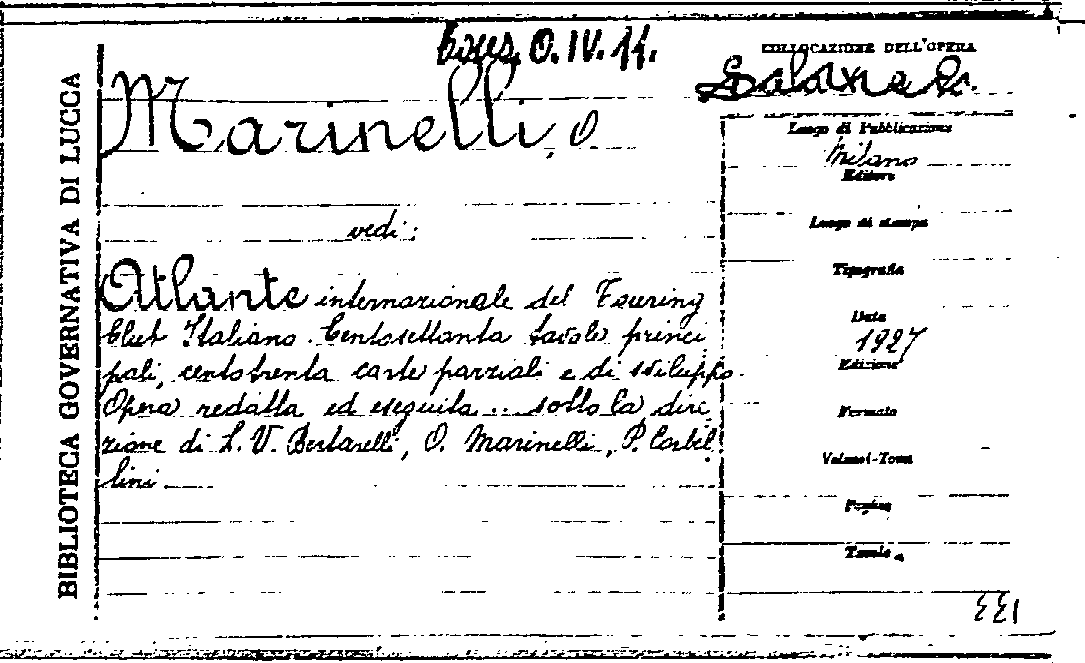 BIBLIOTECA GOVERNATIVA DI LUCCA
Cons. O. IV. 11.
COLLOCAZIONE DELL'OPERA
Marinelli, O.
Luogo di Pubblicazione
Milano
Editore
vedi:
Luogo di stampa
Tipografia
Atlante internazionale del Touring
Club Italiano. Centosettanta tavole princi
pali, centotrenta carte parziali e di sviluppo.
Opera redatta ed eseguita ... sotto la dire
zione di L. V. Bertarelli, O. Marinelli, P. Corbel
lini
Data
1927
Edizione
Formato
Volumi-Tomi
Pagine
Tavole